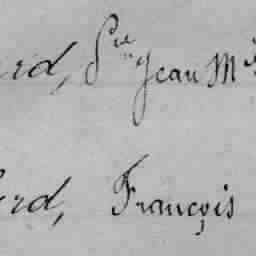 rd, Pre Jean M
rd, François